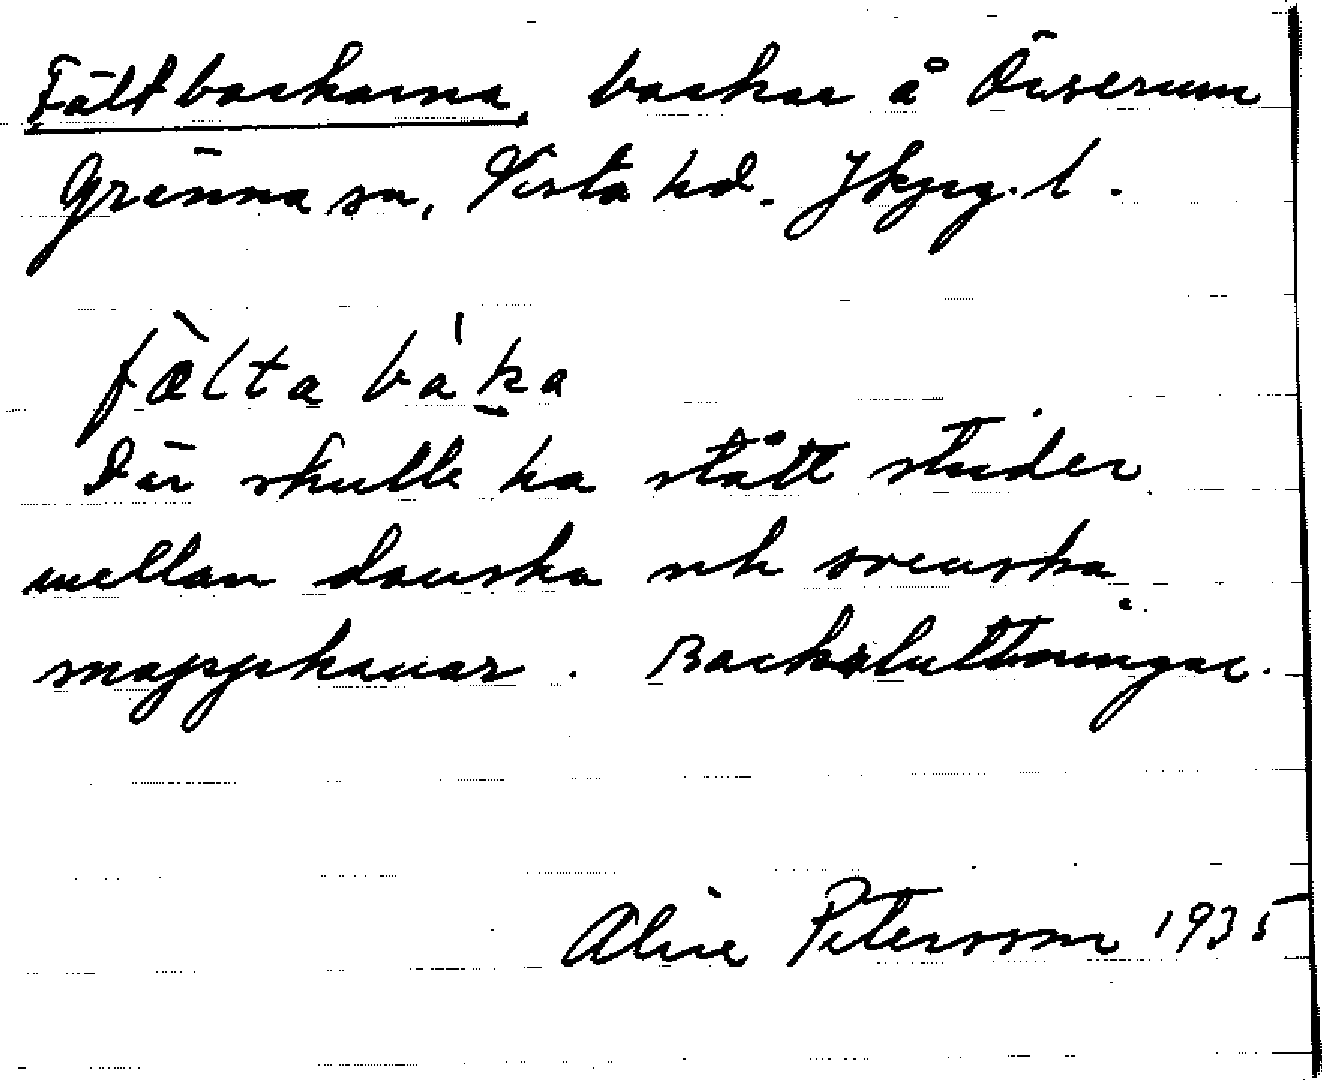 Fältbackarna, backar å Örserum
Gränna sn, Vista hd. Jkpg. l.
fälta bàka
Där skulle ha stått strider
mellan danska och svenska
snapphanar. Backsluttningar.
Alice Petersson 1935